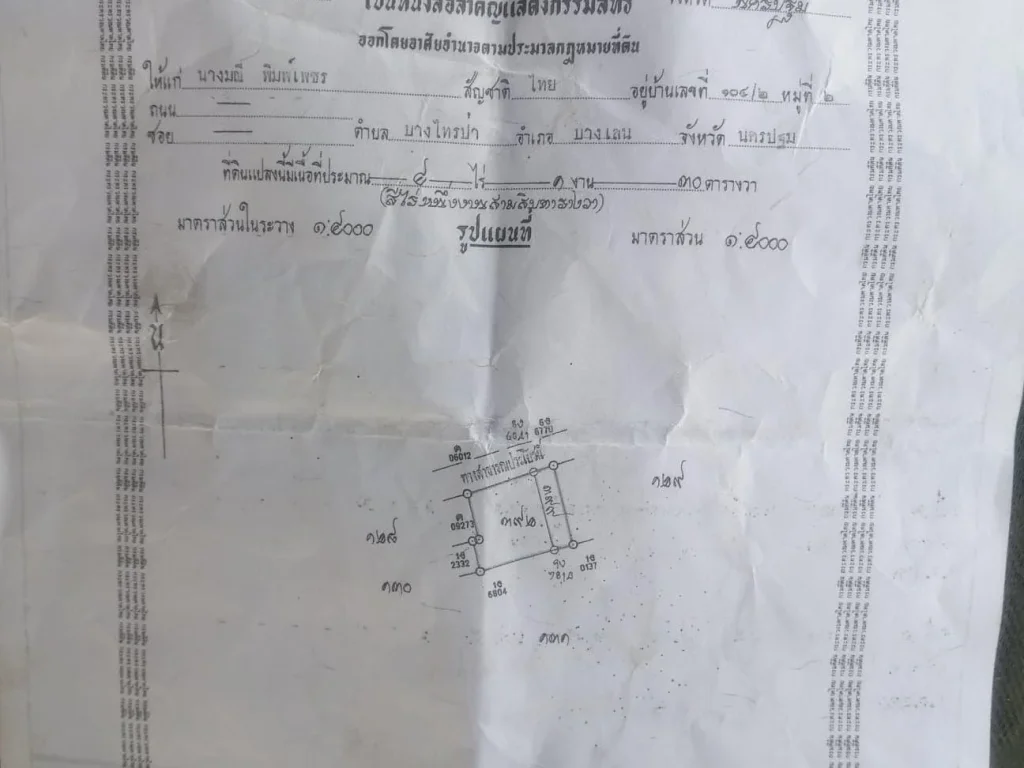 เป็นหนังสือสำคัญแสดงกรรมสิทธิ์ จังหวัด นครปฐม
ออกโดยอาศัยอำนาจตามประมวลกฎหมายที่ดิน
ให้แก่ นางมณี พิมพ์เพชร สัญชาติ ไทย อยู่บ้านเลขที่ ๑๐๔/๒ หมู่ที่ ๒
ถนน
ซอย ตำบล บางไทรป่า อำเภอ บางเลน จังหวัด นครปฐม
ที่ดินแปลงนี้มีเนื้อที่ประมาณ ๔ ไร่ ๑ งาน ๓๐ ตารางวา
(สี่ไร่หนึ่งงานสามสิบตารางวา)
มาตราส่วนในระวาง ๑:๔๐๐๐ รูปแผนที่ มาตราส่วน ๑:๔๐๐๐
น
6770
ค
06012
๑๒๙
๓๙๒
ค
๑๒๘
2332
0137
๑๓๐
6804
๑๓๑